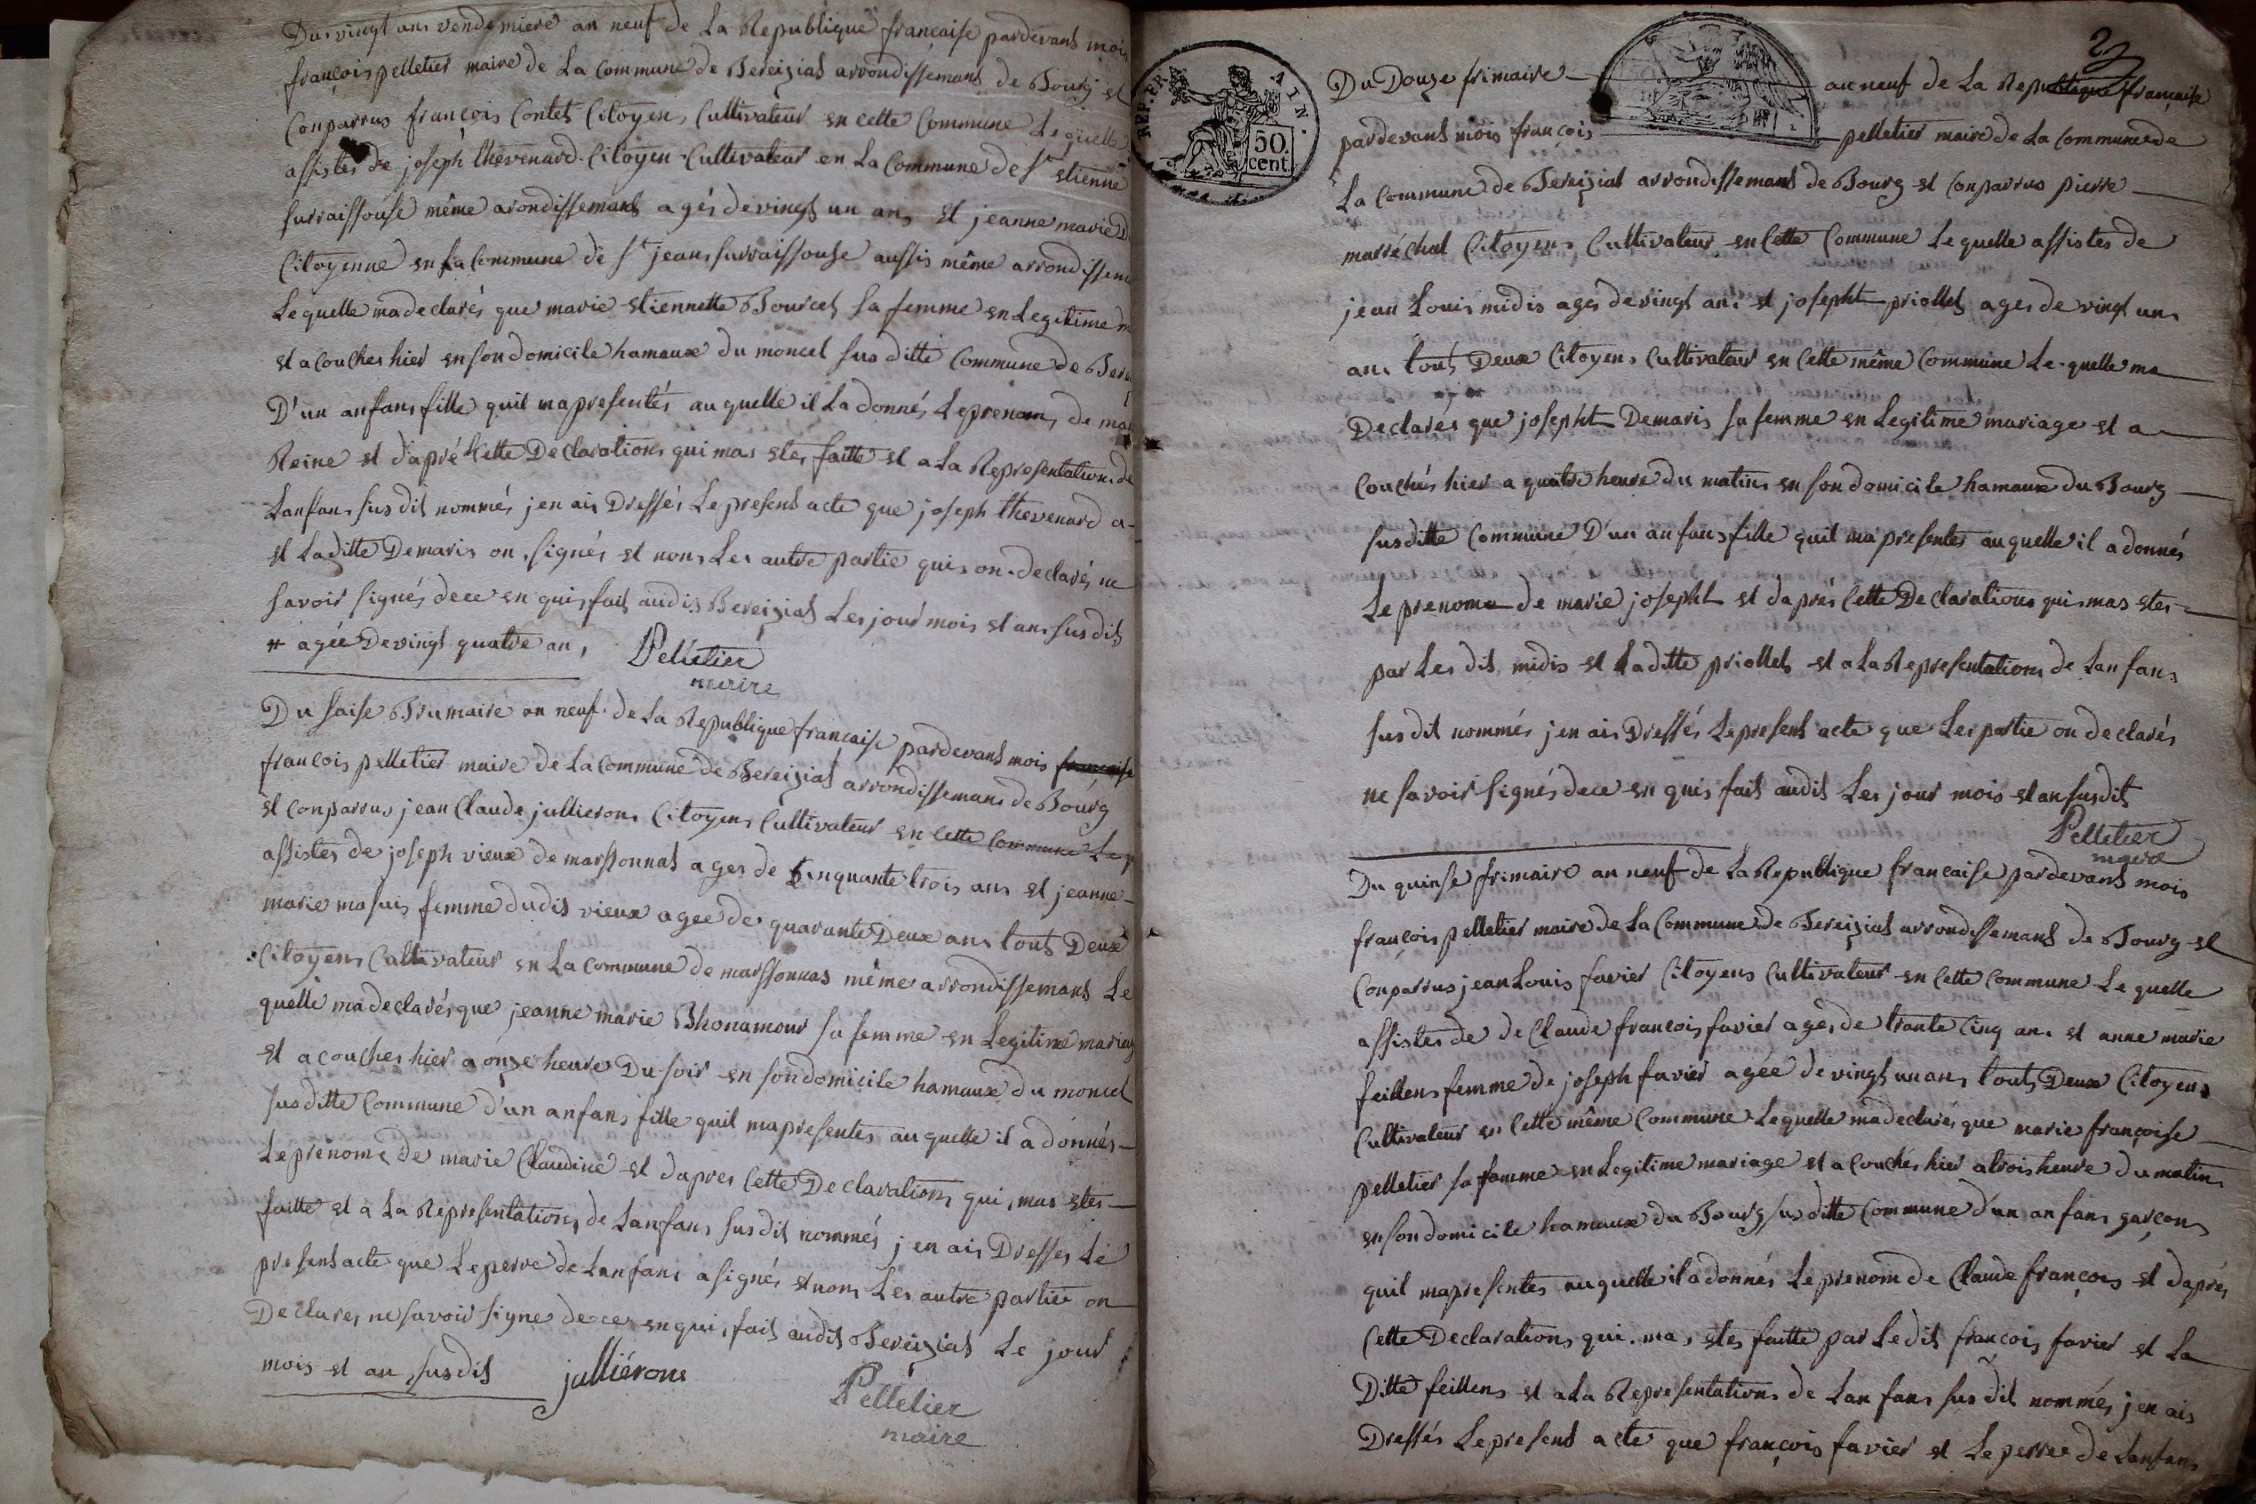 Du vingt un vendemiere an neuf de La Republique francaise pardevant mois
françois pelletier maire de La Commune de Bereiziat arrondissemans de Bourg et
Conparrus françois Contet Citoyens Cultivateur en cette Commune Lequelle
assistes de joseph thevenard Citoyen Cultivateur en La Commune de St etienne
surraissouse même arondissemans agés de vingt un an et jeanne marie D
Citoyenne en La Commune de St jean surraissouse aussis même arrondissem
Lequelle madeclarés que marie etiennette Bourcet sa femme en Legitime m
et acouches hier en son domicile hamaux du moncel susditte Commune de Berei
D'un anfans fille quil mapresentés auquelle il La donnés Leprenom de ma
Reine et daprés Cette Declarations qui mas etes faitte et a La Representations de
Lanfans susdit nommés jen ais Dressés Lepresent acte que joseph thevenard a
et Laditte Demaris on signés et nons Les autre partie quis on declarés ne
savoir signés dece en quis fait audis Bereiziat Les jour mois et ans susdit
# agée Devingt quatre an, Pelletier
maire
Du saise Brumaire an neuf de La Republique francaise pardevans mois francaise
francois pelletier maire de La Commune de Bereiziat arrondissemans de Bourg
et Conparrus jean Claude jullierons Citoyens Cultivateur en Cette Commune Le q
assistes de joseph vieux de marssonnas ages de Cinquante trois ans et jeanne
marie masuis femme dudis vieux agée de quarante Deux ans tout Deux
Citoyens Cultivateur en La Commune de marssonnas même arrondissemans Le
quelle madeclarés que jeanne marie Bhonamour sa femme en Legitime mariag
et acouches hier a onze heure Du soir en son domicile hamaux du moncel
susditte Commune d'un anfans fille quil mapresentes auquelle il a donnés
Leprenoms de marie Claudine et dapres Cette Declarations qui mas etes
faitte et a La Representations de Lanfans susdit nommés jen ais Dresses Le
present acte que Le perre de Lanfans a signés et nons Les autre partie on
Declares ne savoir signe de ce en qui fait audit Bereiziat Le jour
mois et an susdit julliérons
Pelletier
maire
2
REP. FR. AIN. 50. cent.
Du Douze frimaire an neuf de La Republique francaise
pardevant mois françois pelletier maire de La Commune de
La Commune de Bereiziat arrondissemans de Bourg et Conparrus pierre
marréchal Citoyens Cultivateur en Cette Commune Lequelle assistes de
jean Louis midis ages de vingt ans et josepht priollet ages de vingt un
ans tout Deux Citoyens Cultivateur en Cette même Commune Le quelle ma
Declarés que josepht Demaris sa femme en Legitime mariage et a
Couchés hier a quatre heure du matins en son domicile hamaux du Bourg
susditte Commune D'un anfans fille quil mapresentes auquelle il a donnés
Le prenoms de marie josepht et daprés Cette Declarations quis mas etes
par Les dit midis et Laditte priollet et a La Representations de Lanfans
susdit nommés jen ais Dressés Lepresent acte que Les partie on declarés
ne savoir signés dece en quis fait audit Les jour mois et an susdit
Pelletier
maire
Du quinse frimaire an neuf de La Republique francaise pardevans mois
françois pelletier maire de La Commune de Bereiziat arrondissemans de Bourg et
Conparrus jean Louis favier Citoyens Cultivateur en Cette Commune Le quelle
assistes de de Claude francois favier ages de trante Cinq ans et anne marie
feillens femme de joseph favier agée de vingt un ans tout Deux Citoyens
Cultivateur en Cette même Commune Lequelle madeclarés que marie françoise
pelletier sa famme en Legitime mariage et a Couchés hier a trois heure du matins
en son domicile hamaux du Bourg susditte Commune d'un anfans garçons
quil mapresentes auquelle il a donnés Le prenom de Claude françois et daprés
Cette Declarations qui mas etes faitte par Ledit françois favier et La
Ditte feillens et a La Representations de Lanfans susdit nommés jen ais
Dressés Lepresent acte que françois favier et Le perre de Lanfans